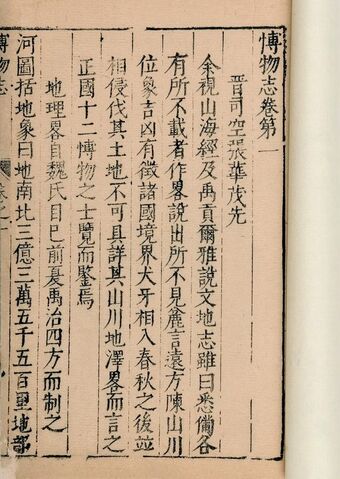 博物志卷第一
晉司空張華茂先
余視山海經及禹貢爾雅說文地志雖曰悉備各
有所不載者作畧說出所不見麄言遠方陳山川
位象吉凶有徵諸國境界犬牙相入春秋之後並
相侵伐其土地不可具詳其山川地澤畧而言之
正國十二博物之士覽而鑒焉
地理畧自魏氏目已前夏禹治四方而制之
河圖括地象曰地南北三億三萬五千五百里地部
博物志